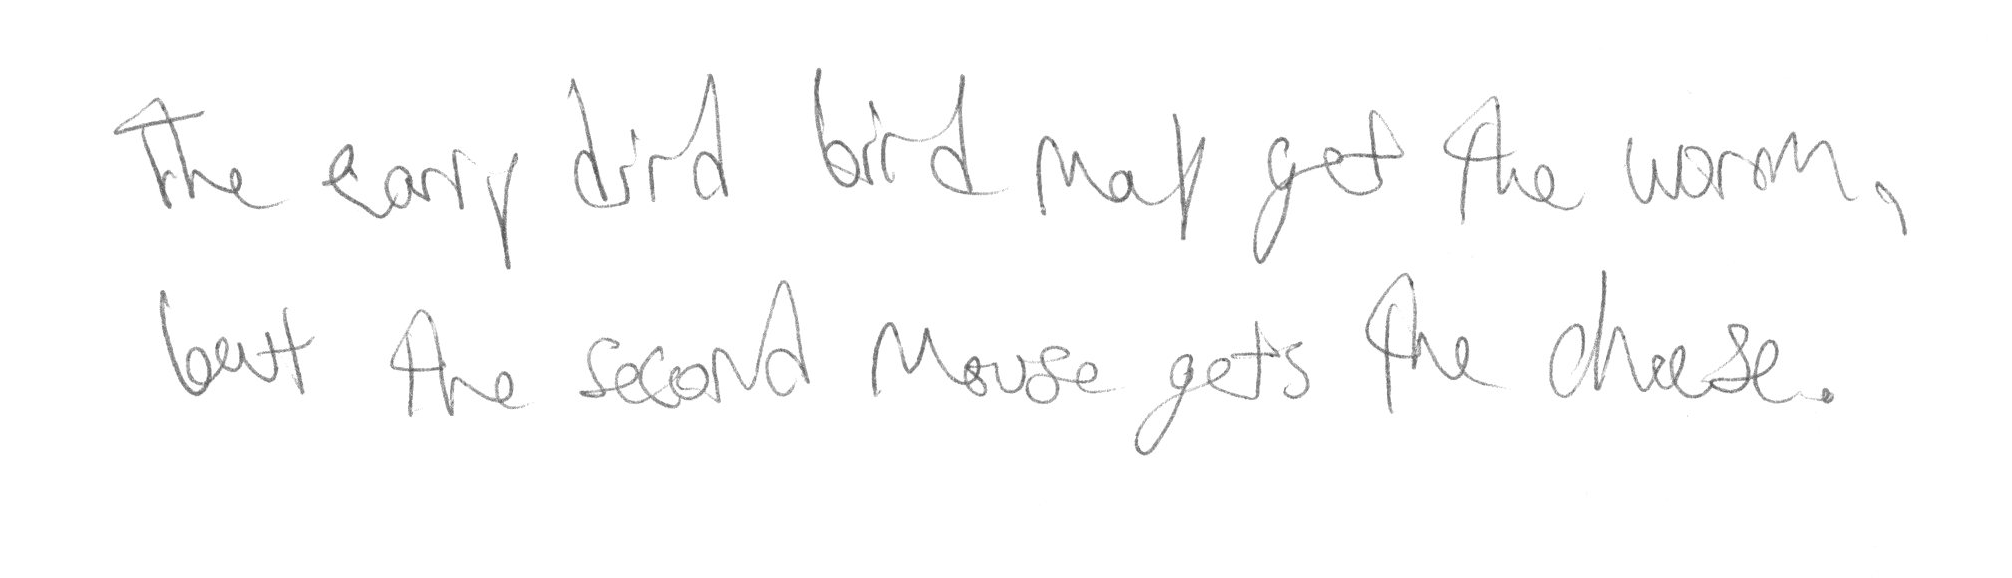 The early dird bird may get the worm,
but the second mouse gets the cheese.